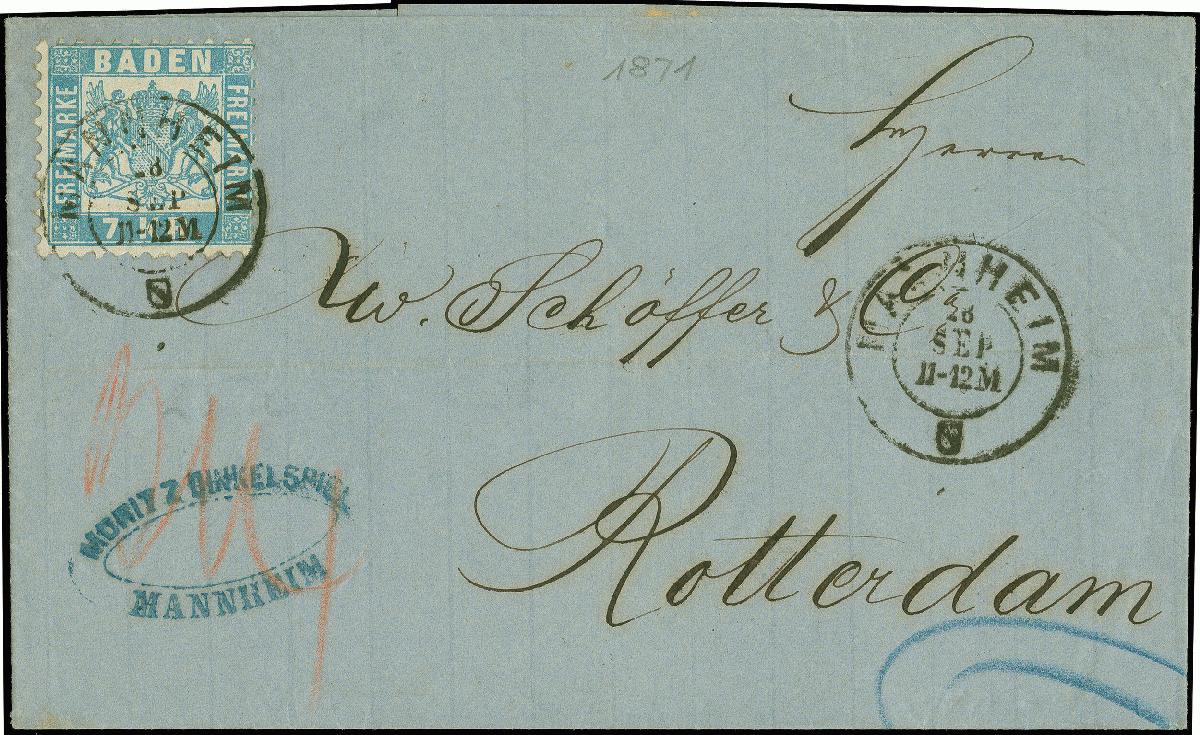 1871
BADEN
FREIMARKE
FREIMARKE
MANNHEIM
28
SEP
11-12M
Herren
Schöffer & Co
MANNHEIM
28
SEP
11-12M
Rotterdam
MORITZ DINKELSPIEL
MANNHEIM